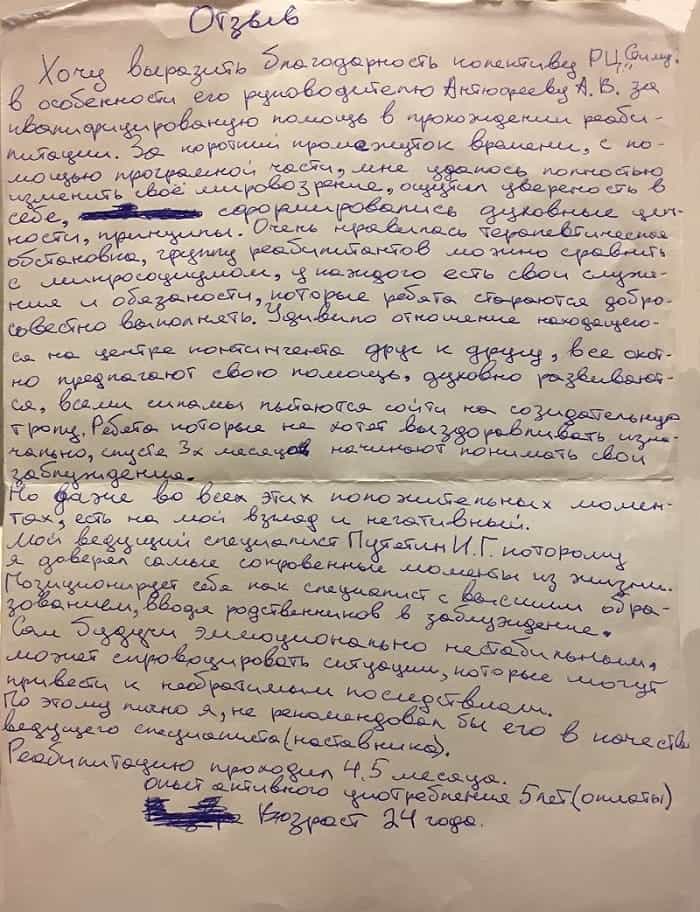 Отзыв
Хочу выразить благодарность колективу РЦ „Стимул
в особенности его руководителю Антюфееву А.В. за
квалифицированую помощь в прохождении реаби-
литации. За короткий промежуток времени, с по-
мощью програмной части, мне удалось полностью
изменить своё мировозрение, ощутил увереность в
себе, сформировались духовные цен-
ности, принципы. Очень нравилась терапевтическая
обстановка, группу реабилитантов можно сравнить
с микросоциумом, у каждого есть свои служе-
ния и обязаности, которые ребята стараются добро-
совестно выполнять. Удивило отношение находящего-
ся на центре контингента друг к другу, все охот-
но предлагают свою помощь, духовно развивают-
ся, всеми силами пытаются сойти на созидательную
тропу. Ребята которые не хотят выздоравливать изна-
чально, спустя 3х месяцов начинают понимать свои
заблуждения.
Но даже во всех этих положительных момен-
тах, есть на мой взгляд и негативный.
Мой ведущий специалист Путятин И.Г. которому
я доверял самые сокровенные моменты из жизни.
Позиционирует себя как специалист с высшим обра-
зованием, вводя родственников в заблуждение.
Сам будучи эмоционально нестабильным,
может спровоцировать ситуации, которые могут
привести к необратимым последствиям.
По этому лично я, не рекомендовал бы его в качестве
ведущего специалиста (наставника).
Реабилитацию проходил 4,5 месяца.
опыт активного употребления 5 лет (опиаты)
Возраст 24 года.